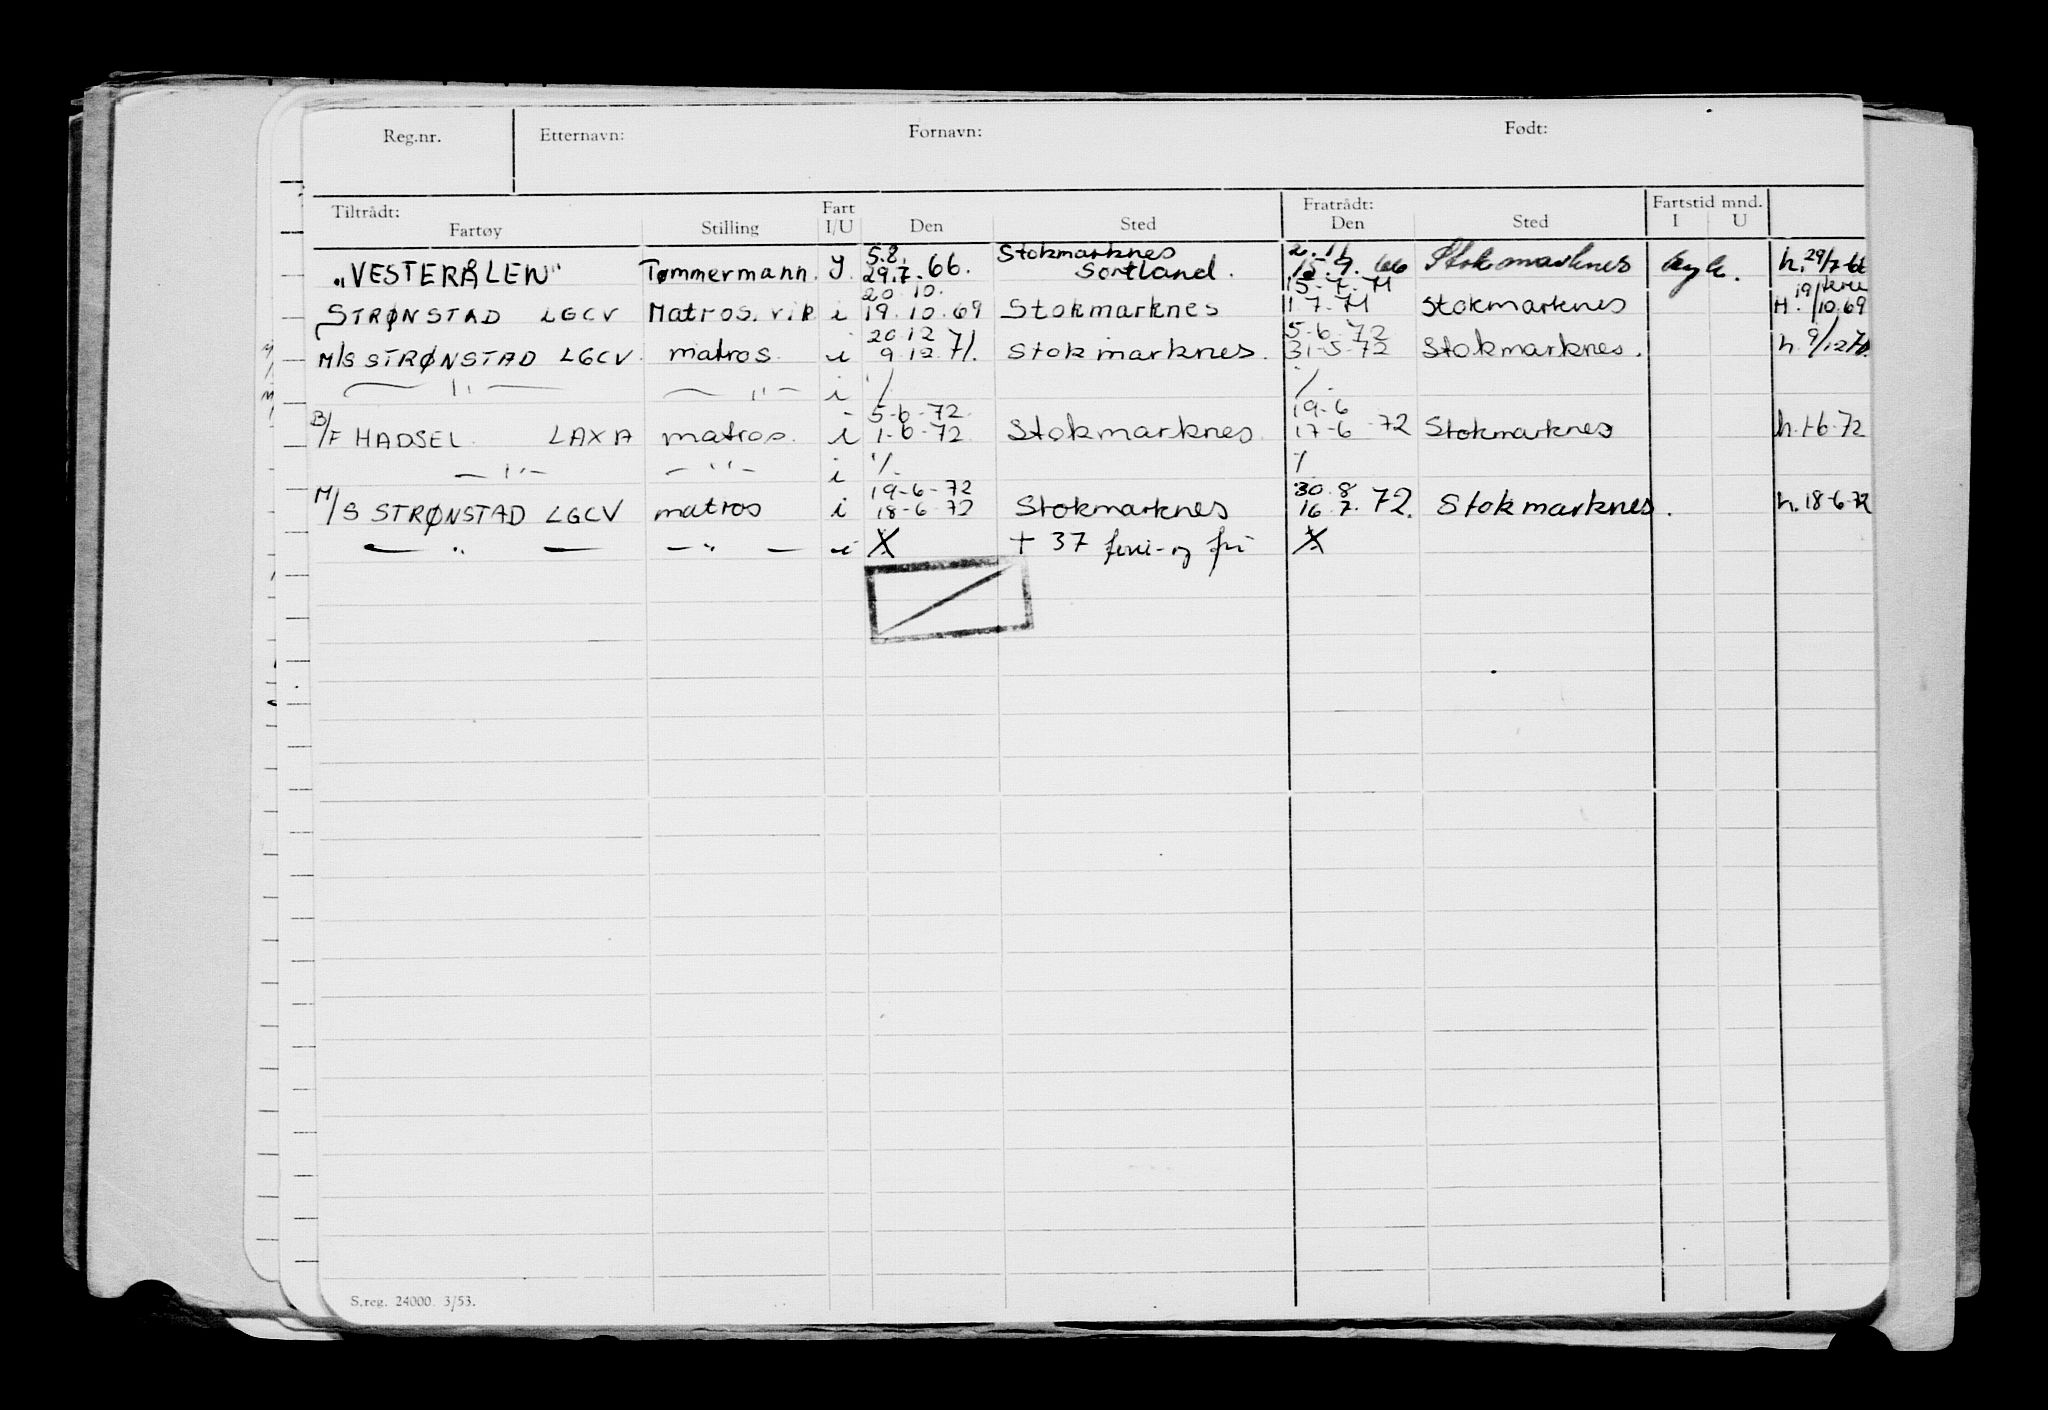 Reg.nr. Etternavn: Fornavn: Født:
Tiltrådt: Fart Fratrådt: Fartstid mnd.
Fartøy Stilling I/U Den Sted Den Sted I U
5.8. Stokmarknes
"VESTERÅLEN" Tømmermann. y. 29.7.66. Sortland. 66 Stokmarknes h. 29/7-66
20.10. 15-7-71 19/
STRØNSTAD LGCV Matros. i 19.10.69 Stokmarknes 1.7.71 Stokmarknes H. /10.69
20.12 5-6-72
M/S STRØNSTAD LGCV. matros. i 9.12.71. Stokmarknes. 31-5-72 Stokmarknes. h. 9/12 71.
— " — — " — i ./. ./.
5-6-72. 19-6
B/F HADSEL. LAXA matros. i 1-6-72. Stokmarknes. 17-6-72 Stokmarknes h. 1-6-72
— " — — " — i ./. ./.
19-6-72 30.8
M/S STRØNSTAD LGCV matros i 18-6-72 Stokmarknes 16.7.72. Stokmarknes. h. 18-6-72
— " — — " — i ./. + 37 ferie-og fri ./.
S.reg. 24000. 3/53.